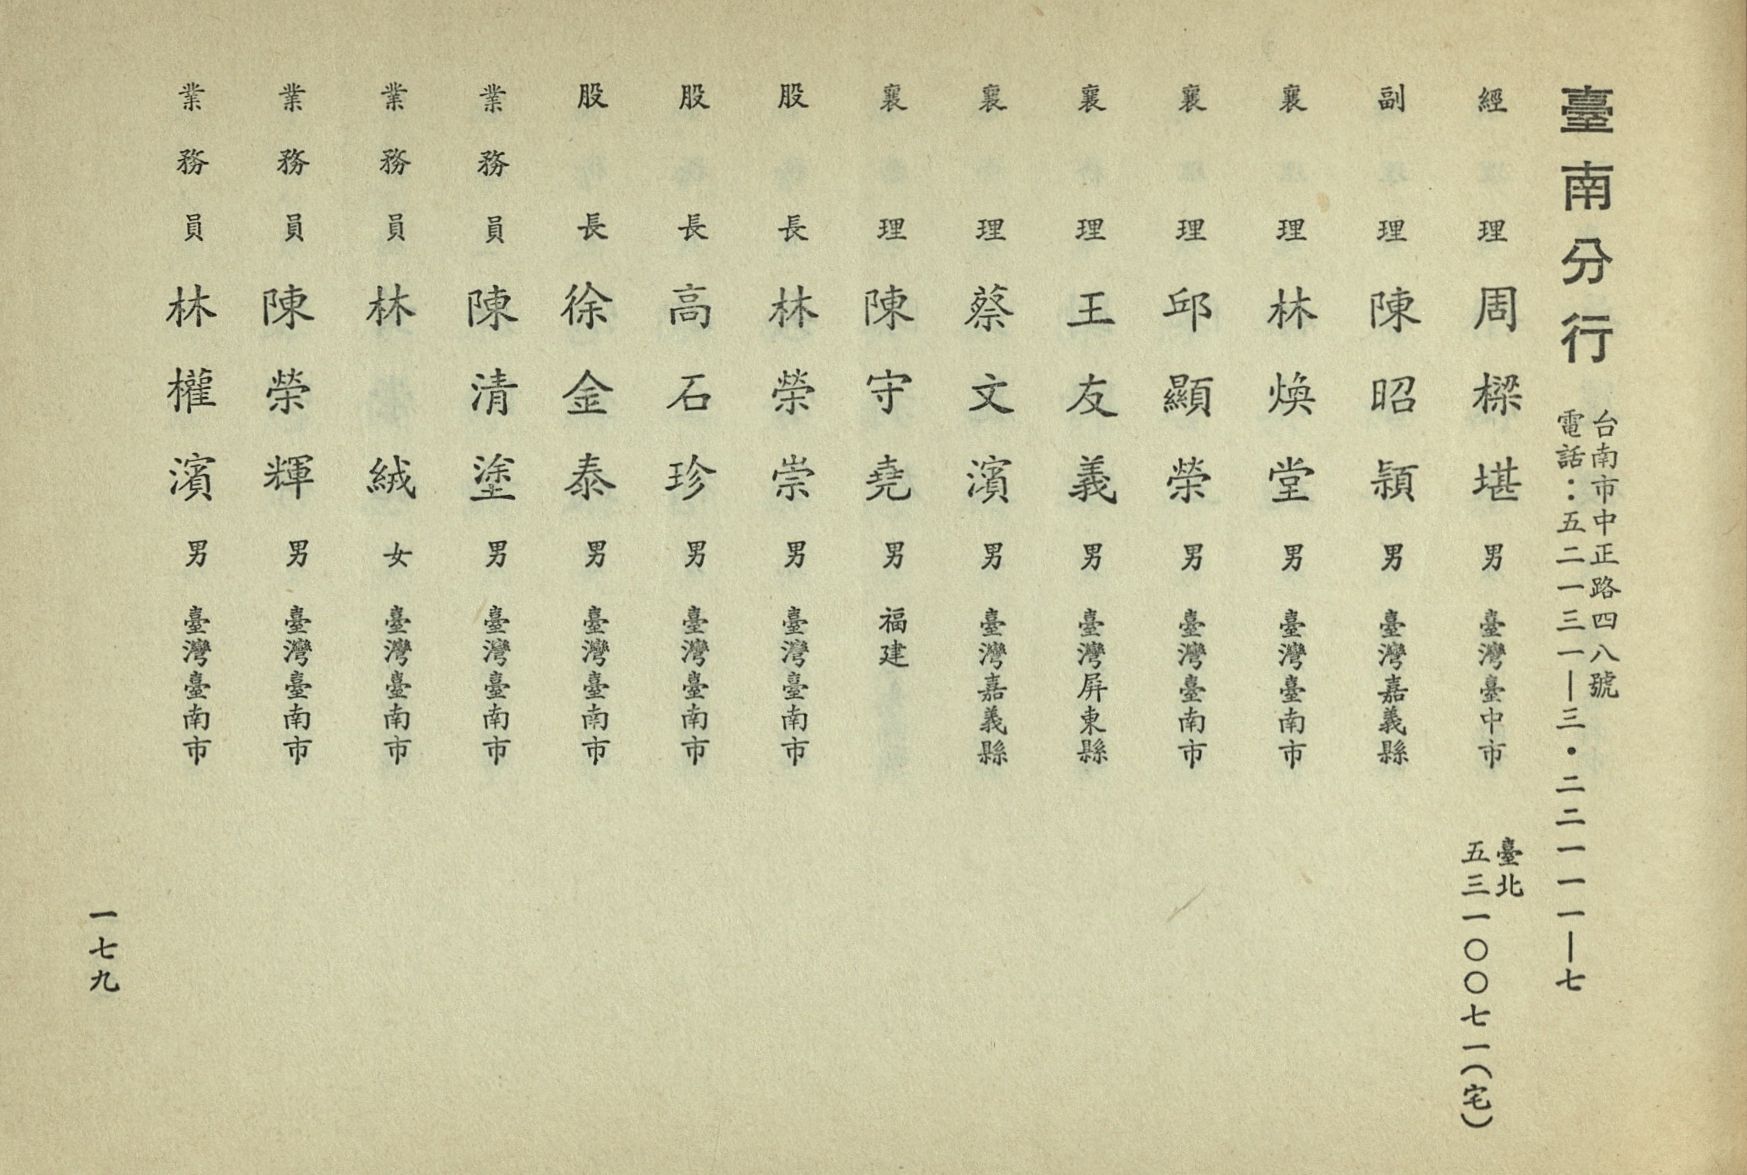 臺南分行
台南市中正路四八號
電話：五二一三一—三・二二一一一—七
經理 周樑堪 男 臺灣臺中市 臺北
五三一〇〇七一(宅)
副理 陳昭穎 男 臺灣嘉義縣
襄理 林煥堂 男 臺灣臺南市
襄理 邱顯榮 男 臺灣臺南市
襄理 王友義 男 臺灣屏東縣
襄理 蔡文濱 男 臺灣嘉義縣
襄理 陳守堯 男 福建
股長 林榮崇 男 臺灣臺南市
股長 高石珍 男 臺灣臺南市
股長 徐金泰 男 臺灣臺南市
業務員 陳清塗 男 臺灣臺南市
業務員 林絨 女 臺灣臺南市
業務員 陳榮輝 男 臺灣臺南市
業務員 林權濱 男 臺灣臺南市
一七九